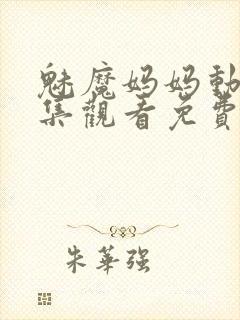 魅魔妈妈動
集觀看免費
朱華强